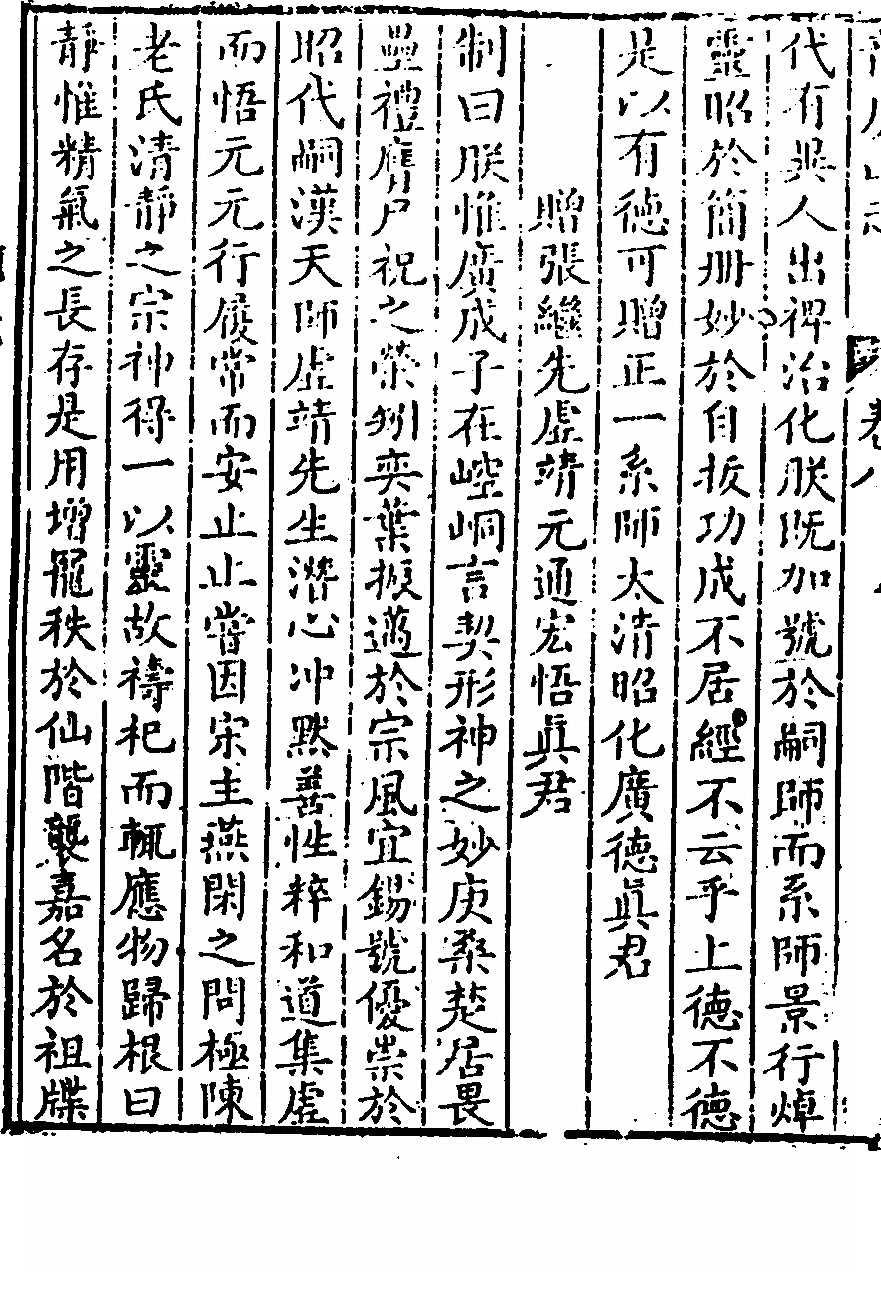 代有異人出禆治化朕既加號於嗣師而系師景行焯
靈昭於簡冊妙於自扳功成不居經不云乎上德不德
是以有德可贈正一系師太清昭化廣德眞君
贈張繼先虛靖元通宏悟眞君
制曰朕惟廣成子在崆峒言契形神之妙庚桑楚居畏
壘禮膺尸祝之榮矧奕葉振邁於宗風宜錫號優崇於
昭代嗣漢天師虛靖先生潛心沖默善性粹和道集虛
而悟元元行履常而安止止嘗因宋主燕閑之問極陳
老氏清靜之宗神得一以靈故禱祀而輒應物歸根曰
靜惟精氣之長存是用增寵秩於仙階襲嘉名於祖牒